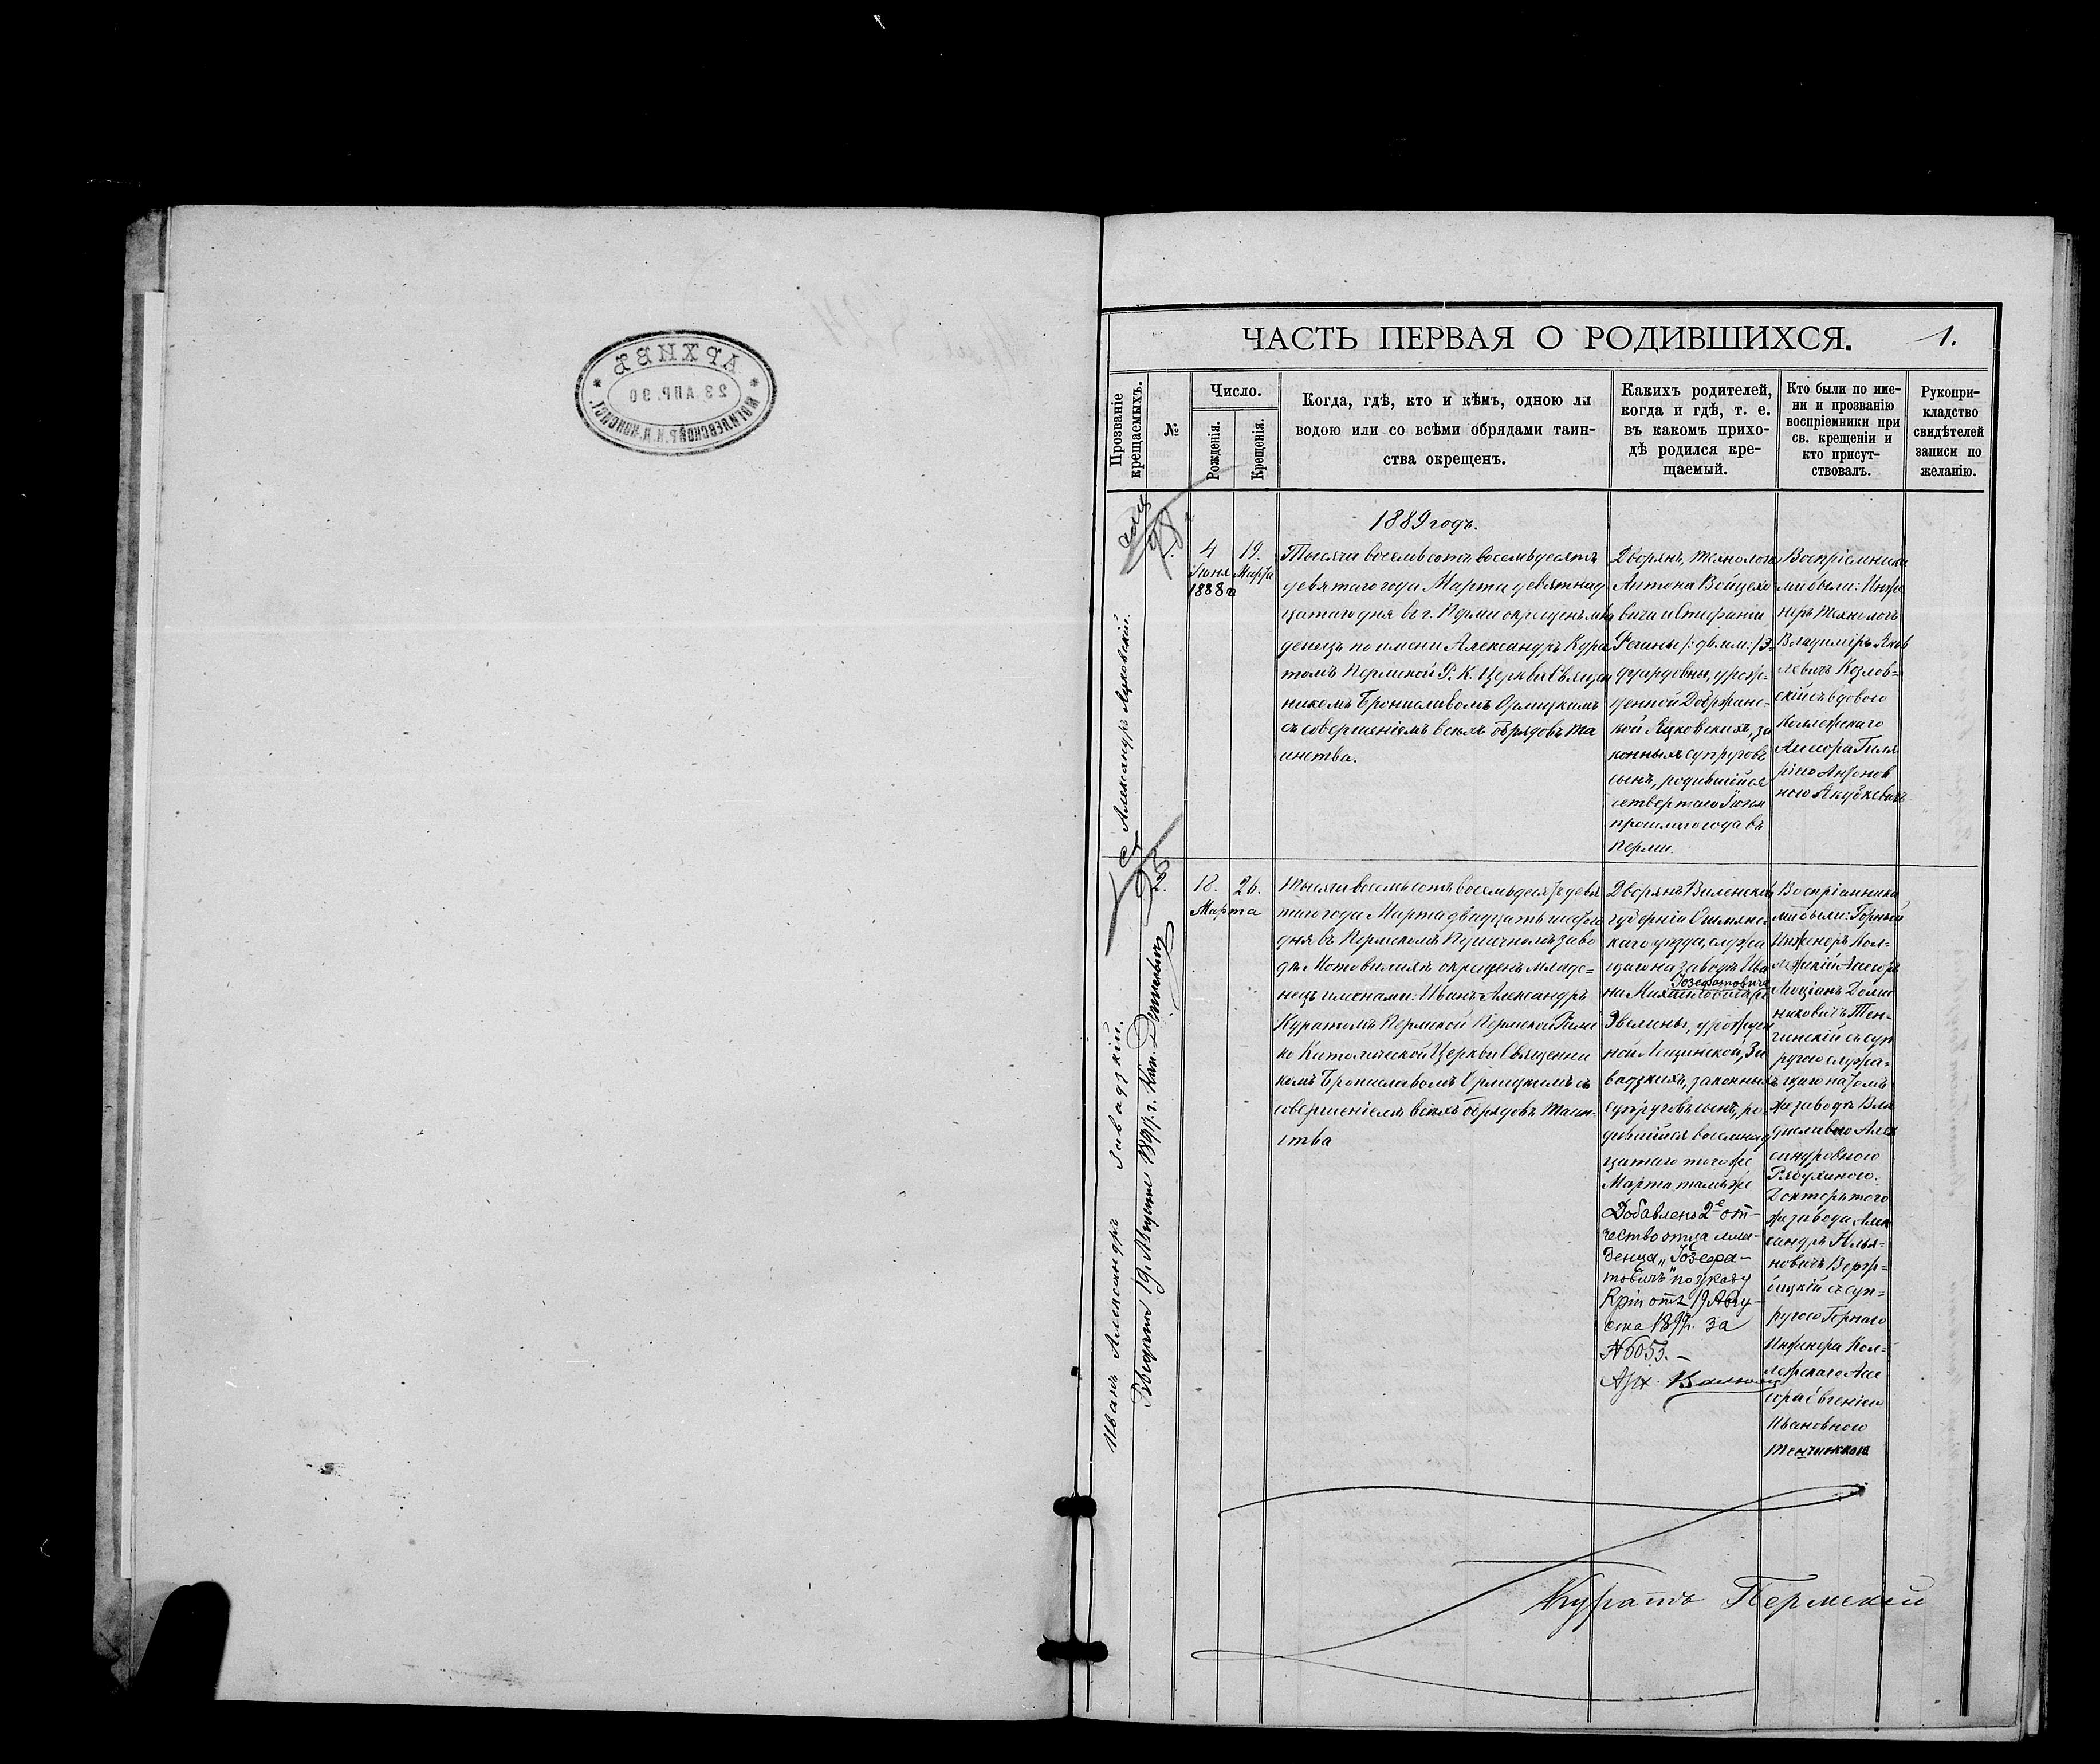 АРХИВЪ
23 АПР. 90
МОГИЛЕВСКОЙ Р. К. КОНСИСТ.
ЧАСТЬ ПЕРВАЯ О РОДИВШИХСЯ.
1.
Прозваніе
крещаемыхъ.
№
Число.
Рожденія.
Крещенія.
Когда, гдѣ, кто и кѣмъ, одною ли
водою или со всѣми обрядами таин-
ства окрещенъ.
Какихъ родителей,
когда и гдѣ, т. е.
въ какомъ прихо-
дѣ родился кре-
щаемый.
Кто были по име-
ни и прозванію
воспріемники при
св. крещеніи и
кто присут-
ствовалъ.
Рукопри-
кладство
свидѣтелей
записи по
желанію.
1889 годъ.
Александръ Яцковскій.
1.
4
Іюня
1888 г.
19.
Марта
Тысяча восемьсотъ восемьдесятъ
девятаго года Марта девятнад
цатаго дня въ г. Перми окрещенъ мла
денецъ по имени Александръ Кура
томъ Пермской Р. К. Церкви Священ
никомъ Брониславомъ Орлицкимъ
съ совершеніемъ всѣхъ обрядовъ та
инства.
Дворянъ, технолога
Антона Войцехо
вича и Стефаніи
Регины /: дв. им: / Э
дуардовны, урож-
денной Добржинс-
кой Яцковскихъ, за
конныхъ супруговъ
сынъ, родившійся
четвертаго Іюня
прошлаго года въ
Перми.
Воспріемника
ми были: Инже
неръ технологъ
Владиміръ Яков
левичъ Козлов-
скій съ вдовою
Коллежскаго
Ассесора Гиля
ріею Антонов
ною Якубкевичъ
Иванъ Александръ Завадзкій.
2.
18.
26.
Марта
Тысяча восемьсотъ восемьдесятъ девя
таго года Марта двадцать шестого
дня въ Пермскомъ Пушечномъ заво
дѣ Мотовилихѣ окрещенъ младе-
нецъ именами: Иванъ Александръ
Куратомъ Пермской Пермской Римс
ко Католической Церкви Священни
комъ Брониславомъ Орлицкимъ съ
совершеніемъ всѣхъ обрядовъ таин-
ства
Дворянъ Виленской
губерніи Ошмянс-
каго уѣзда, служа
щаго на заводѣ Ива
Іозефатовича
на Михаила
Эвелины, урожден
ной Лещинской, За
вадзкихъ, законныхъ
супруговъ сынъ, ро
дившійся восемнад
цатаго того же
Марта тамъ же
Добавлено 2е от-
чество отца мла-
денца "Іозефа-
товичъ" по указу
Кріи отъ 19 Авгу-
ста 1897 г. за
№ 6053. –
Воспріемника
ми были: Горный
Инженеръ Кол-
лежскій Асессоръ
Люціанъ Доми
никовичъ Тен-
чинскій съ суп
ругою служа-
щаго на томъ
же заводѣ Вла
диславою Алек
сандровною
Рябухиною.
Докторъ того
же завода Алек
сандръ Улья-
новичъ Верж-
бицкій съ суп-
ругою Горнаго
Инженера Кол-
лежскаго Асес
сора Евгеніею
Ивановною
Тенчинскою
Куратъ Пермскій